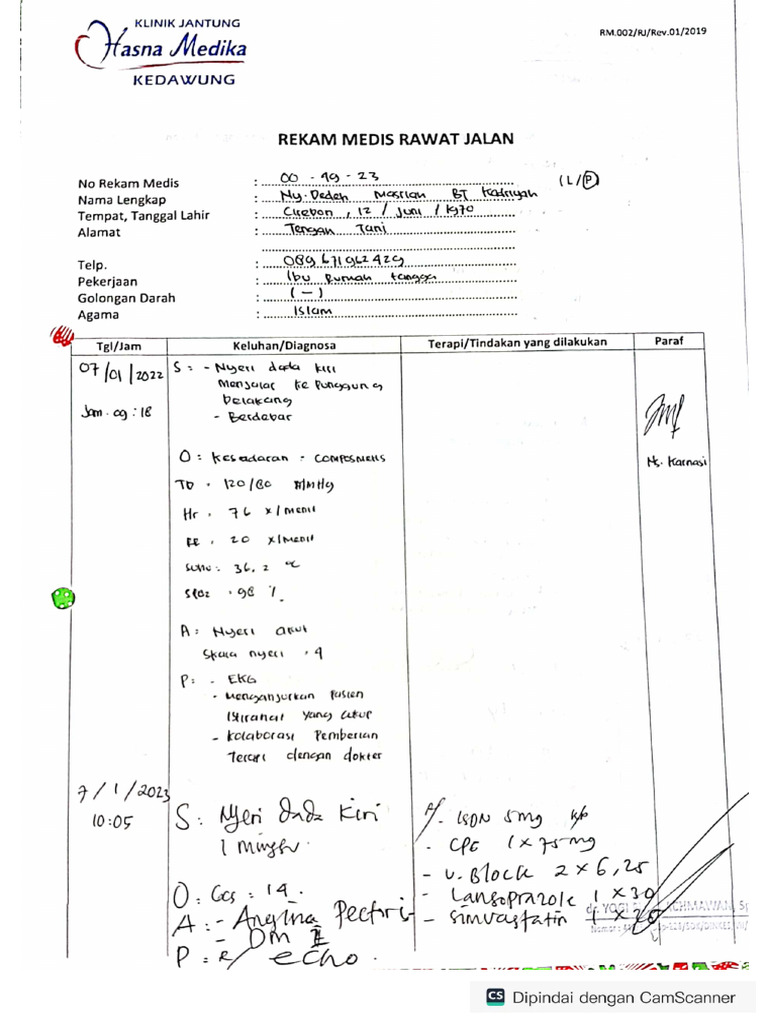 KLINIK JANTUNG
Hasna Medika
KEDAWUNG
RM.002/RJ/Rev.01/2019
REKAM MEDIS RAWAT JALAN
No Rekam Medis : 00 - 49 - 23 (L/P)
Nama Lengkap : Ny. Dedeh Masriah BT Kadriyah
Tempat, Tanggal Lahir : Cirebon, 12 / Juni / 1970
Alamat : Tengah Tani
Telp. : 089671962429
Pekerjaan : Ibu Rumah tangga
Golongan Darah : (-)
Agama : Islam
Tgl/Jam Keluhan/Diagnosa Terapi/Tindakan yang dilakukan Paraf
07/01/2022 S : - Nyeri dada kiri
Menjalar ke Punggung
belakang
Jam. 09 : 18
- Berdebar
O : Kesadaran = COMPOSMENTIS
Ns. Karnasi
TD : 120/80 MMHg
Hr : 76 x/menit
RR : 20 x/Menit
Suhu : 36,2 °C
SPO2 : 98 %
A : Nyeri akut
Skala nyeri : 4
P : - EKG
- Menganjurkan Pasien
Istirahat yang cukup
- kolaborasi Pemberian
Terapi dengan dokter
7/1/2023
10:05
S : Nyeri dada kiri
1 minggu
O : Gcs : 14
A : - Angina Pectoris
- DM II
P : R/ echo.
R/ - ISDN 5mg k/p
- CPG 1 x 75 mg
- V. Block 2 x 6,25
- Lansoprazole 1 x 30
- Simvastatin 1 x 20
CS Dipindai dengan CamScanner